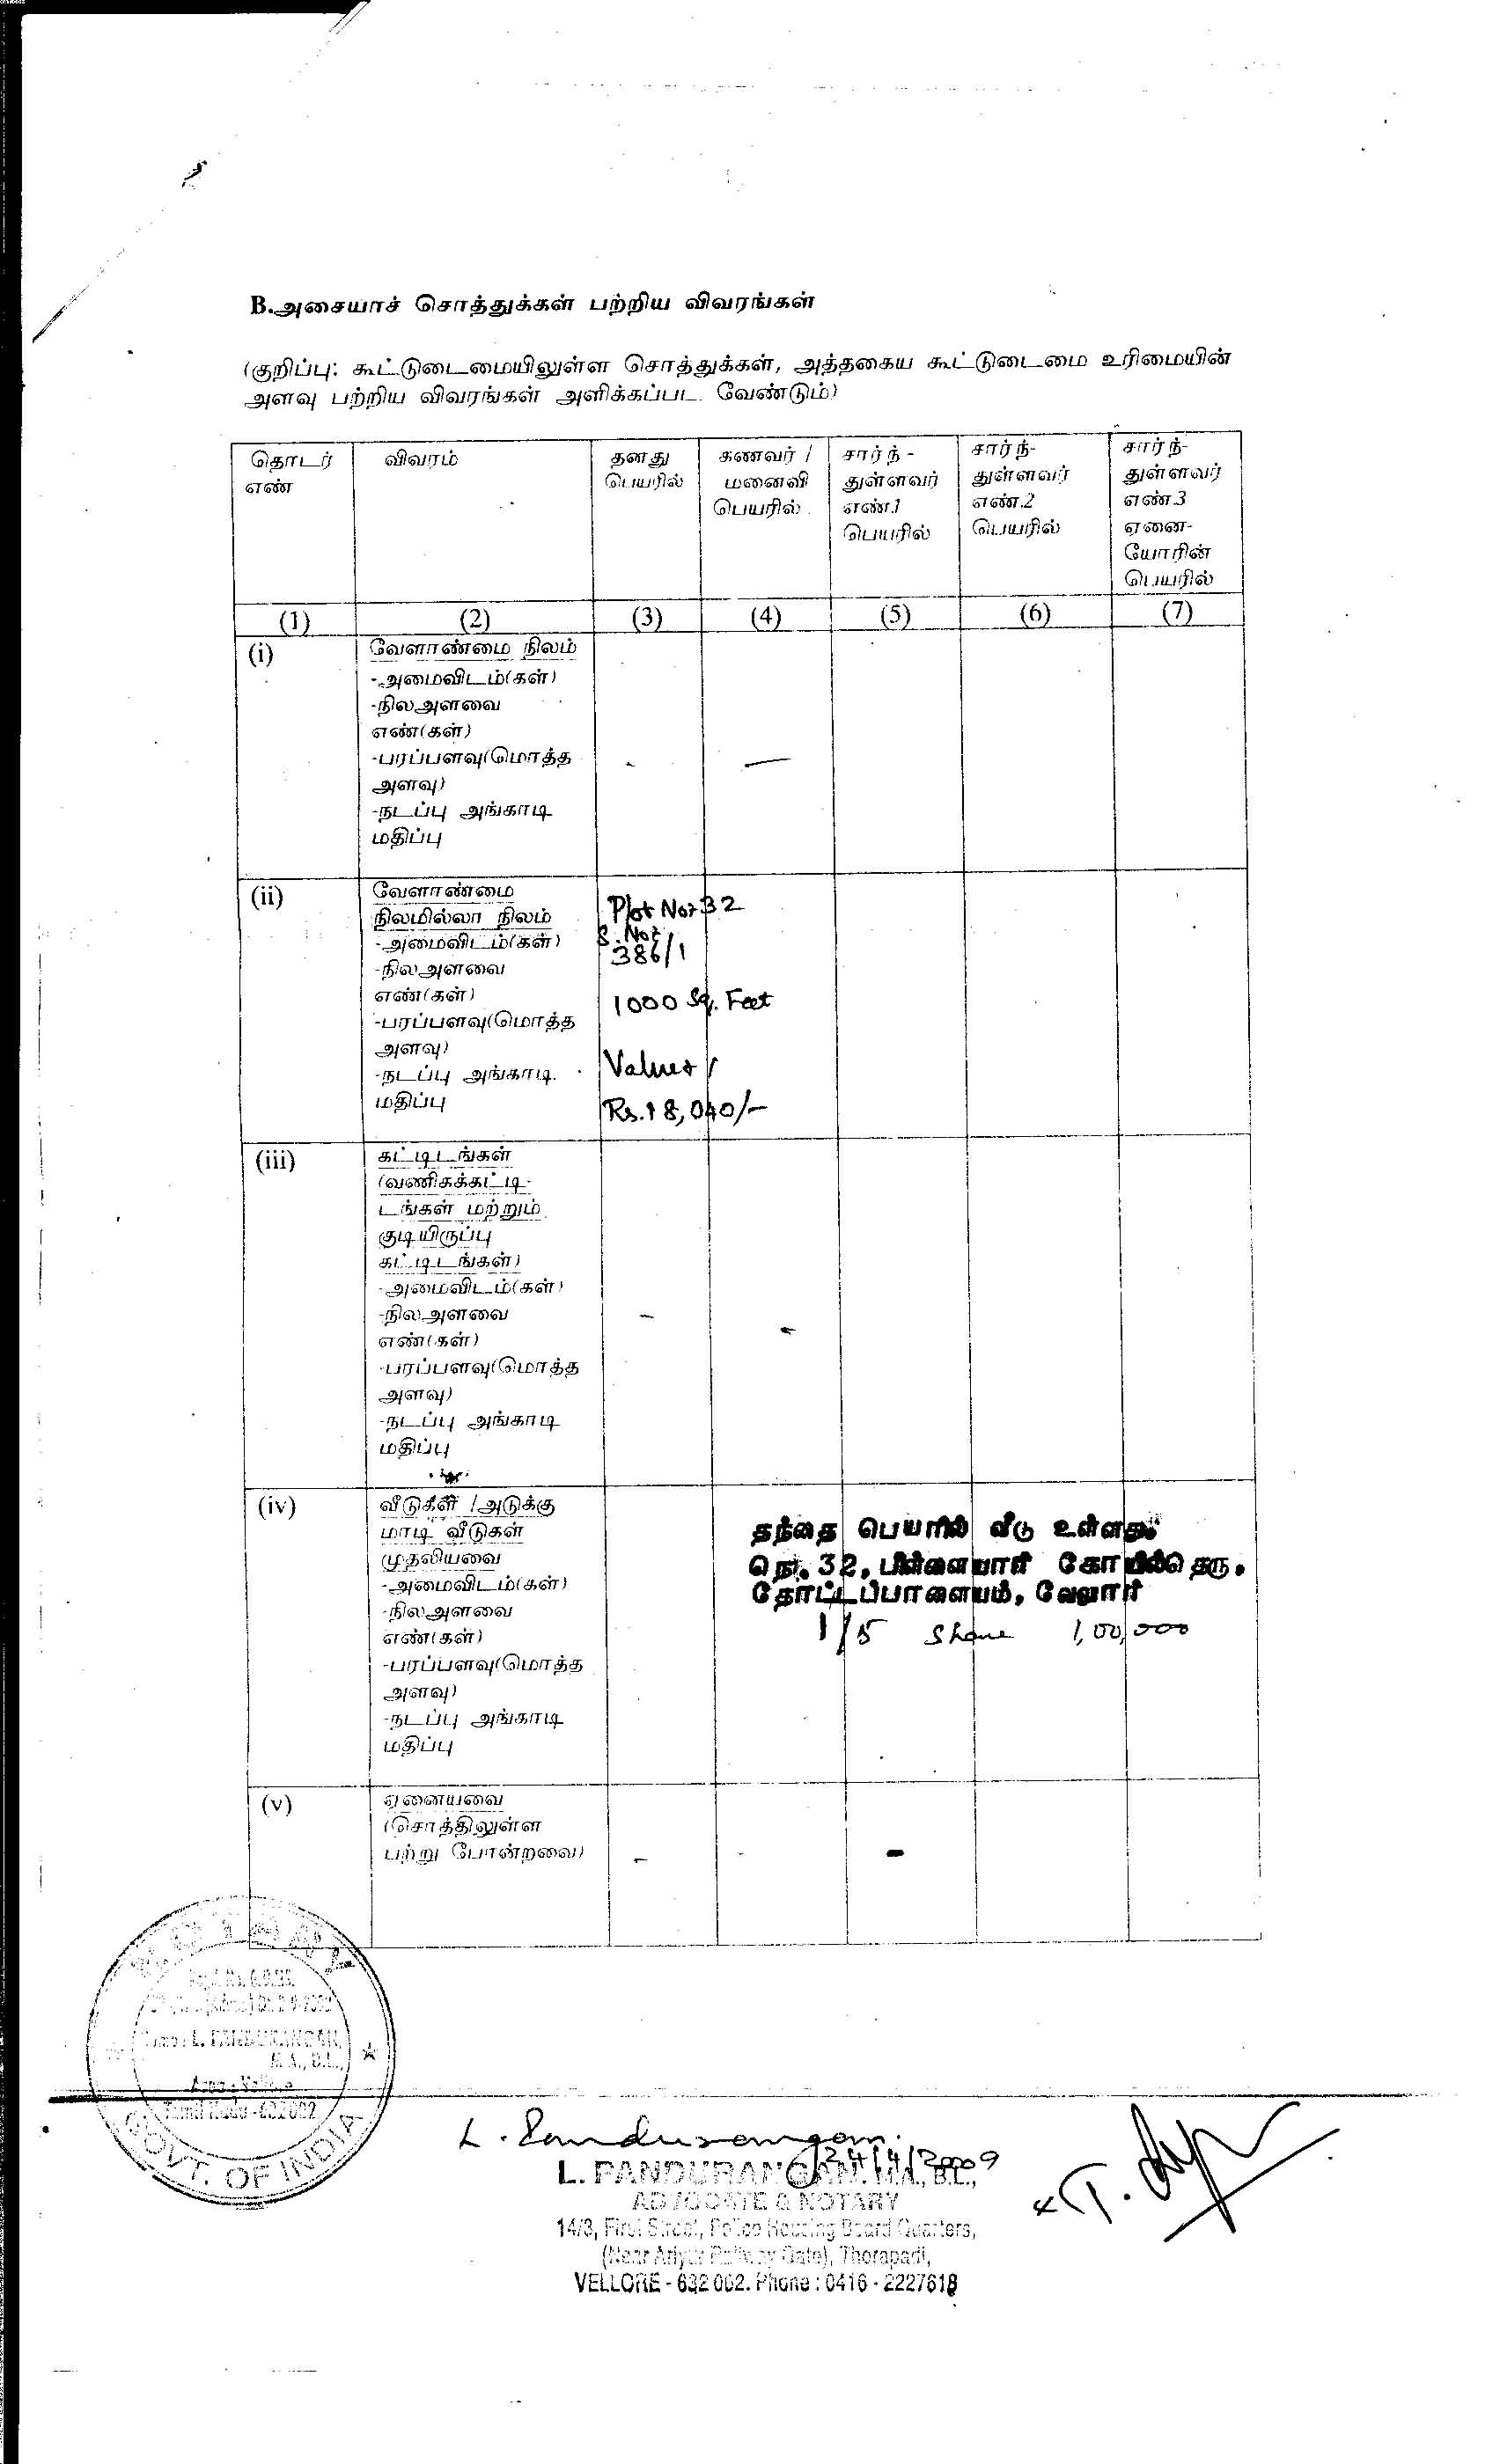 B.அசையாச் சொத்துக்கள் பற்றிய விவரங்கள்
(குறிப்பு: கூட்டுடைமையிலுள்ள சொத்துக்கள், அத்தகைய கூட்டுடைமை உரிமையின்
அளவு பற்றிய விவரங்கள் அளிக்கப்பட வேண்டும்)
தொடர்
எண்
விவரம்
தனது
பெயரில்
கணவர் /
மனைவி
பெயரில்
சார்ந்-
துள்ளவர்
எண்.1
பெயரில்
சார்ந்-
துள்ளவர்
எண்.2
பெயரில்
சார்ந்-
துள்ளவர்
எண்.3
ஏனை-
யோரின்
பெயரில்
(1) (2) (3) (4) (5) (6) (7)
(i)
வேளாண்மை நிலம்
-அமைவிடம்(கள்)
-நிலஅளவை
எண்(கள்)
-பரப்பளவு(மொத்த
அளவு)
-நடப்பு அங்காடி
மதிப்பு
- -
(ii)
வேளாண்மை
நிலமில்லா நிலம்
-அமைவிடம்(கள்)
-நிலஅளவை
எண்(கள்)
-பரப்பளவு(மொத்த
அளவு)
-நடப்பு அங்காடி
மதிப்பு
Plot No: 32
S. No:
386/1
1000 Sq. Feet
Value:
Rs.18,040/-
(iii)
கட்டிடங்கள்
(வணிகக்கட்டி-
டங்கள் மற்றும்
குடியிருப்பு
கட்டிடங்கள்)
-அமைவிடம்(கள்)
-நிலஅளவை
எண்(கள்)
-பரப்பளவு(மொத்த
அளவு)
-நடப்பு அங்காடி
மதிப்பு
- -
(iv)
வீடுகள் /அடுக்கு
மாடி வீடுகள்
முதலியவை
-அமைவிடம்(கள்)
-நிலஅளவை
எண்(கள்)
-பரப்பளவு(மொத்த
அளவு)
-நடப்பு அங்காடி
மதிப்பு
தந்தை பெயரில் வீடு உள்ளது.
நெ. 32, பிள்ளையார் கோயில்தெரு,
தோட்டப்பாளையம், வேலூர்
1/5 Share 1,00,000
(v)
ஏனையவை
(சொத்திலுள்ள
பற்று போன்றவை)
- - -
L. PANDURANGAN,
M.A., B.L.,
Tamil Nadu-632002
GOVT. OF INDIA
L. Pandurangan.
24/4/2009
L. PANDURANGAN. M.A., B.L.,
ADVOCATE & NOTARY
14/3, First Street, Police Housing Board Quarters,
(Near Ariyur Railway Gate), Thorapadi,
VELLORE - 632 002. Phone : 0416 - 2227618